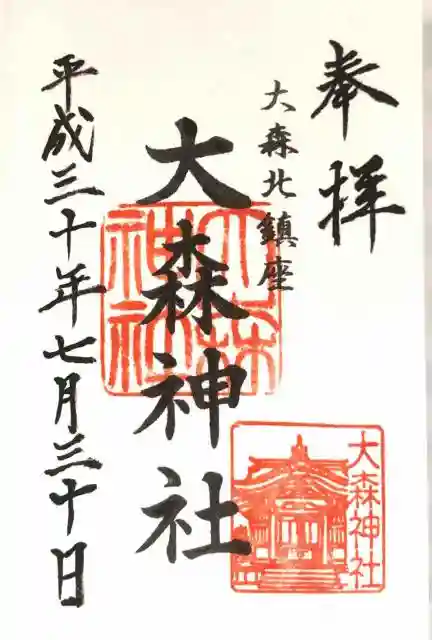 奉拝
大森北鎮座
大森神社
大森神社
大森神社
平成三十年七月三十日